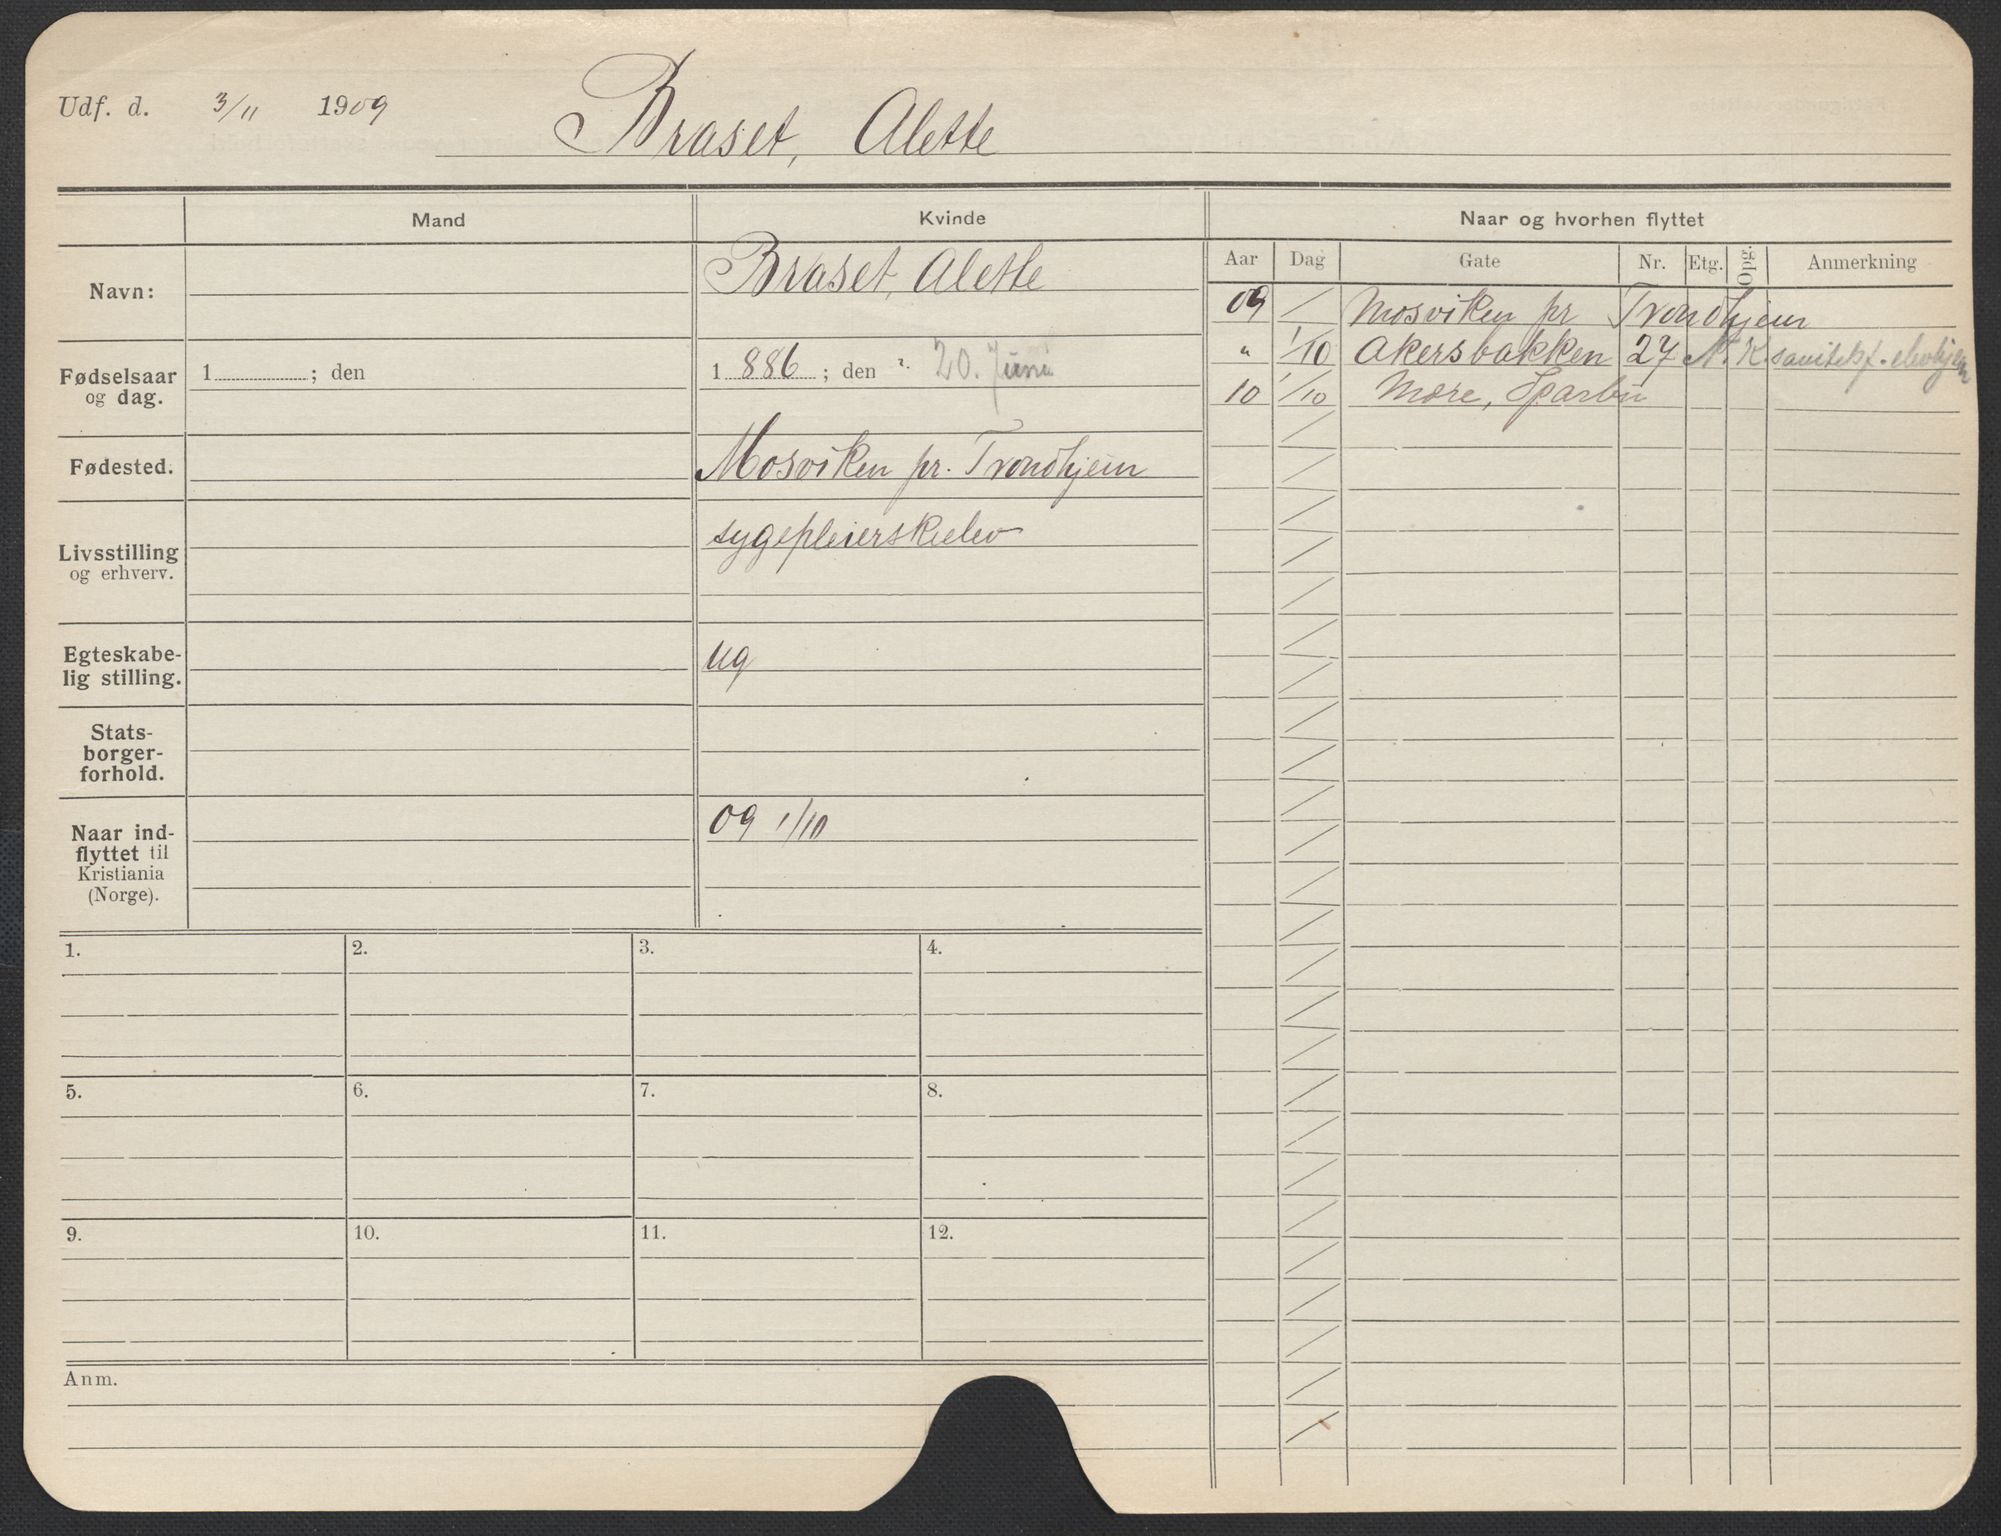 Udf. d. 3/11 1909 Braset, Alette
Mand Kvinde Naar og hvorhen flyttet
Navn: Braset, Alette
Fødselsaar og dag. 1 ; den 1 886 ; den 20. Juni
Fødested. Mosviken pr. Trondhjem
Livsstilling og erhverv. sygepleierskeelev
Egteskabe-
lig stilling. ug
Stats-
borger-
forhold.
Naar ind-
flyttet til
Kristiania
(Norge). 09 1/10
Aar Dag Gate Nr. Etg. Opg. Anmerkning
09 / Mosviken pr Trondhjem
" 1/10 Akersbakken 27 N. K. sanitetsf. elevhjem
10 1/10 Mære, Sparbu
1. 2. 3. 4.
5. 6. 7. 8.
9. 10. 11. 12.
Anm.